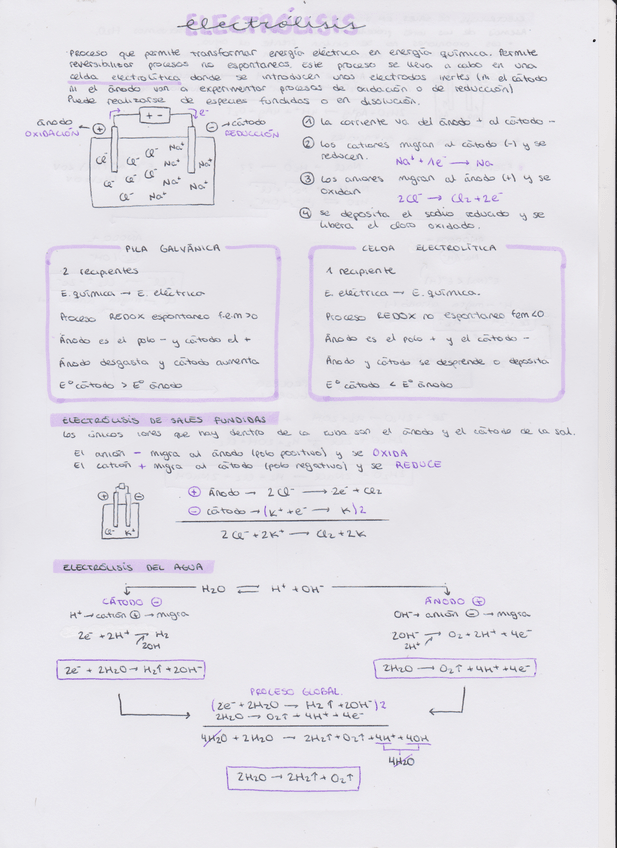 ELECTRÓLISIS
electrólisis
Proceso que permite transformar energía eléctrica en energía química. Permite
reversibilizar procesos no espontáneos. Este proceso se lleva a cabo en una
celda electrolítica donde se introducen unos electrodos inertes (ni el cátodo
ni el ánodo van a experimentar procesos de oxidación o de reducción)
Puede realizarse de especies fundidas o en disolución.
ánodo
OXIDACIÓN
+
+ -
e⁻
-
cátodo
REDUCCIÓN
Cl⁻ Cl⁻ Cl⁻ Na⁺ Na⁺
Cl⁻ Cl⁻ Na⁺ Na⁺
Cl⁻ Cl⁻ Na⁺ Na⁺
① la corriente va del ánodo + al cátodo -
② los cationes migran al cátodo (-) y se
reducen.
Na⁺ + 1e⁻ → Na
③ Los aniones migran al ánodo (+) y se
oxidan
2Cl⁻ → Cl₂ + 2e⁻
④ se deposita el sodio reducido y se
libera el cloro oxidado.
PILA GALVÁNICA
2 recipientes
E. química → E. eléctrica
Proceso REDOX espontaneo f.e.m >0
Ánodo es el polo - y cátodo el +
Ánodo desgasta y cátodo aumenta
E° cátodo > E° ánodo
CELDA ELECTROLÍTICA
1 recipiente
E. eléctrica → E. química.
Proceso REDOX no espontaneo fem<0
Ánodo es el polo + y el cátodo -
Ánodo y cátodo se desprende o deposita
E° cátodo < E° ánodo
ELECTRÓLISIS DE SALES FUNDIDAS
Los únicos iones que hay dentro de la cuba son el ánodo y el cátodo de la sal.
El anión - migra al ánodo (polo positivo) y se OXIDA
El catión + migra al cátodo (polo negativo) y se REDUCE
+ -
Cl⁻ K⁺
⊕ Ánodo → 2Cl⁻ → 2e⁻ + Cl₂
⊖ Cátodo → (K⁺ + e⁻ → K)2
2Cl⁻ + 2K⁺ → Cl₂ + 2K
ELECTRÓLISIS DEL AGUA
H₂O ⇌ H⁺ + OH⁻
CÁTODO ⊖
H⁺ → catión ⊕ → migra
2e⁻ + 2H⁺ → H₂
2OH
2e⁻ + 2H₂O → H₂↑ + 2OH⁻
ÁNODO ⊕
OH⁻ → anión ⊖ → migra
2OH⁻ → O₂ + 2H⁺ + 4e⁻
2H⁺
2H₂O → O₂↑ + 4H⁺ + 4e⁻
PROCESO GLOBAL.
(2e⁻ + 2H₂O → H₂↑ + 2OH⁻)2
2H₂O → O₂↑ + 4H⁺ + 4e⁻
4H₂O + 2H₂O → 2H₂↑ + O₂↑ + 4H⁺ + 4OH
4H₂O
2H₂O → 2H₂↑ + O₂↑